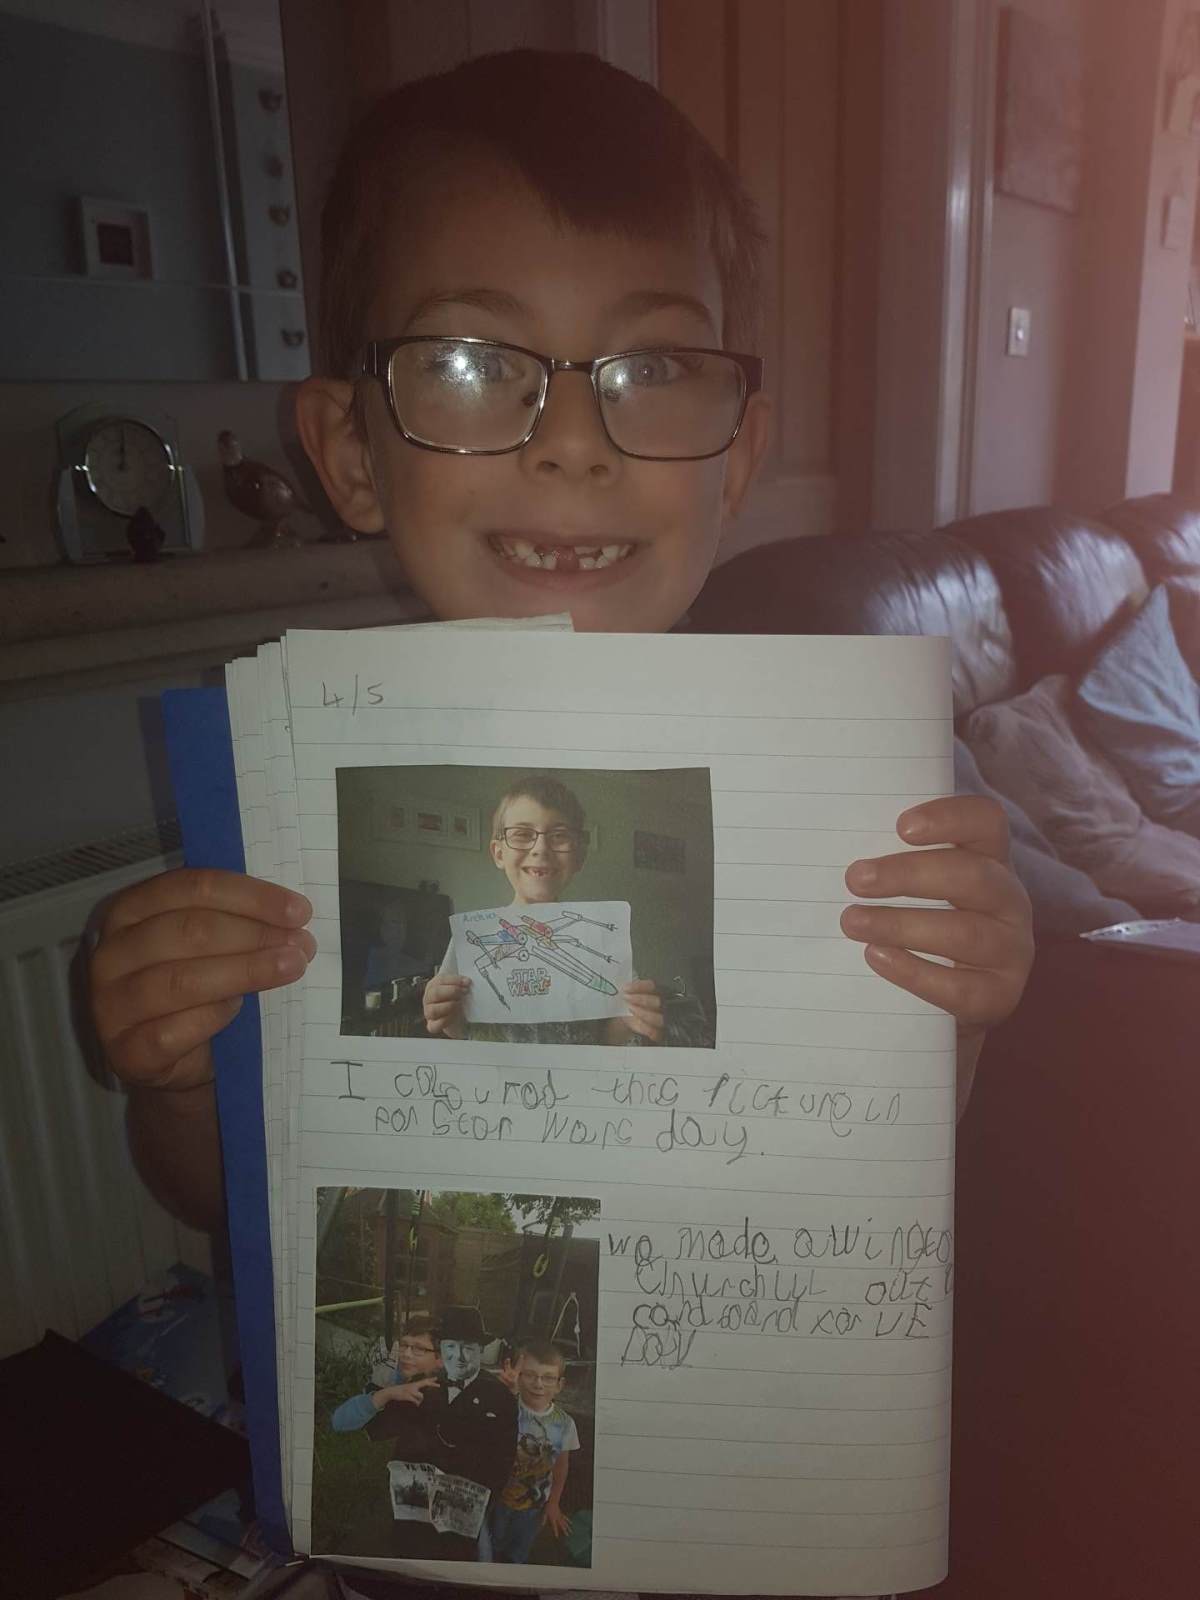 4/5
Archie
STAR
WARS
I coloured this picture in
for Star Wars day.
we made a winsto
Churchill out o
cardboard for VE
DAY